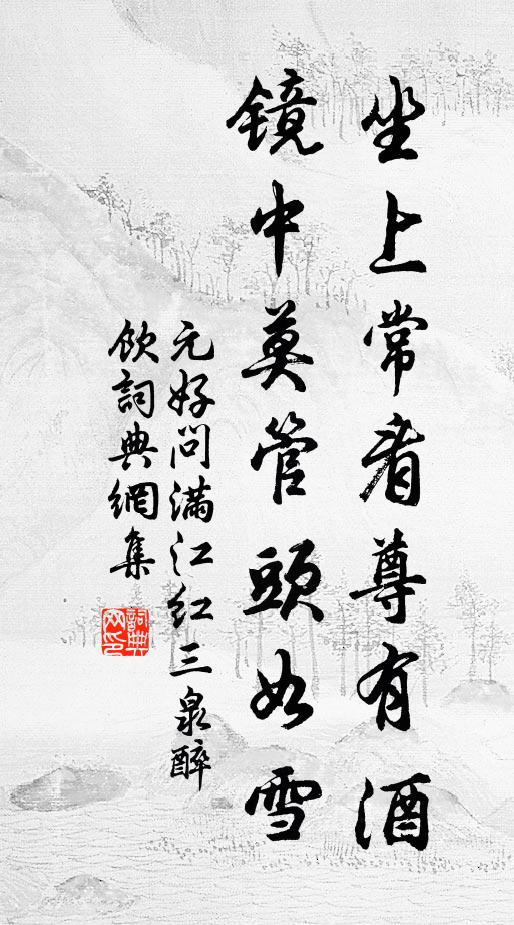 坐上常看尊有酒
镜中莫管頭如雪
元好问满江红三泉醉
飲詞典網集
詞典
网印